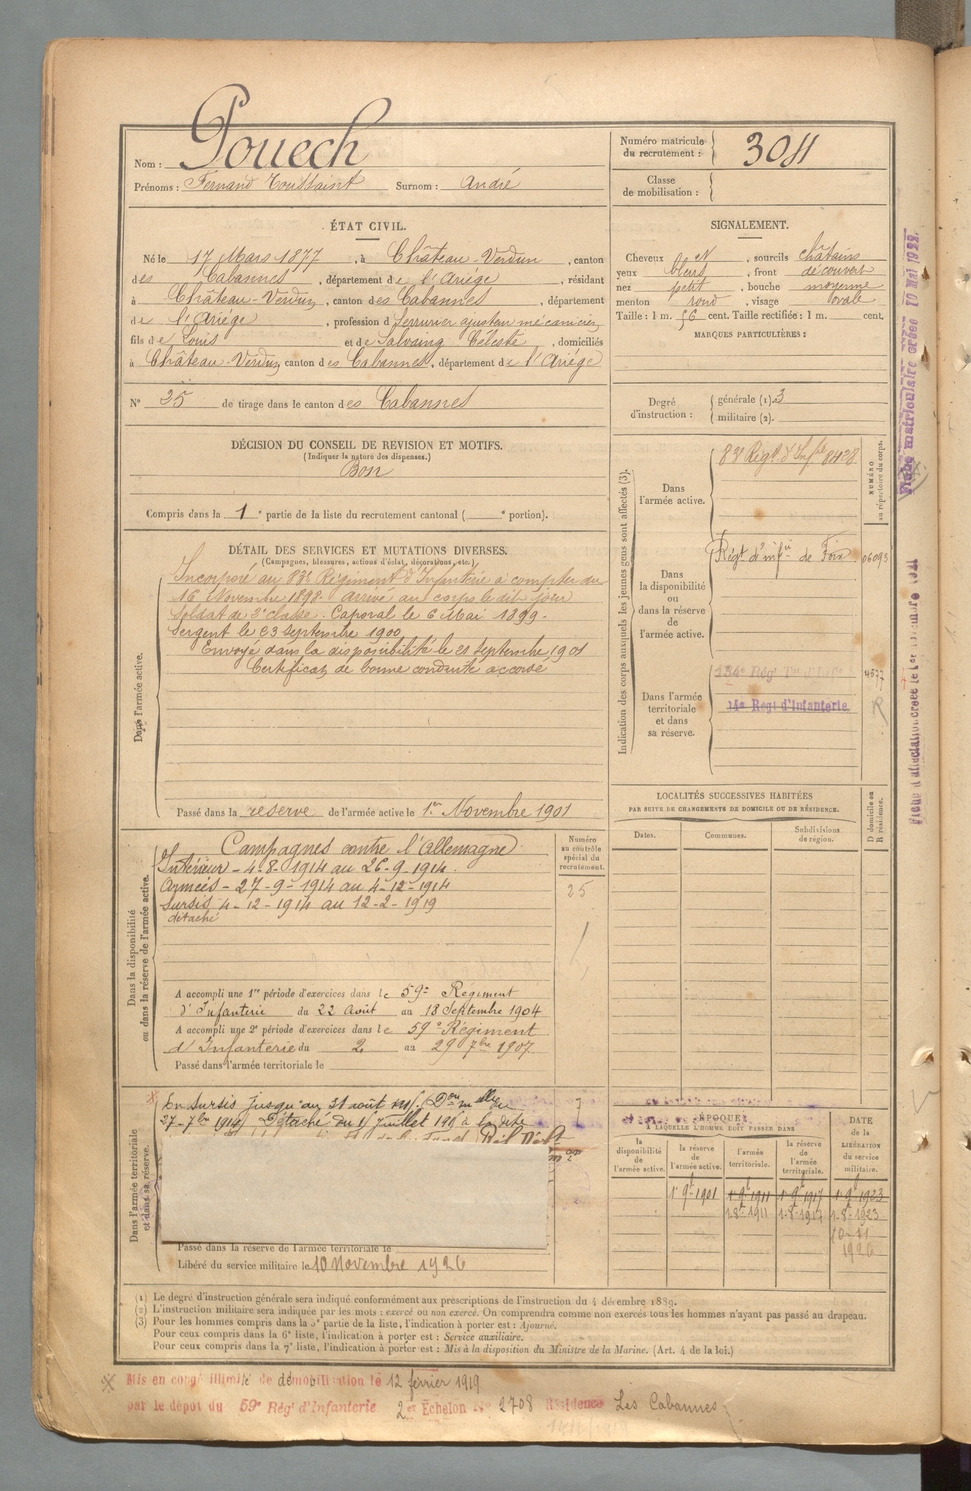 Nom : Pouech
Prénoms : Fernand Toussaint Surnom : André
Numéro matricule du recrutement : 3011
Classe de mobilisation :
ÉTAT CIVIL.
Né le 17 Mars 1877, à Château-Verdun, canton
des Cabannes, département de l'Ariège, résidant
à Château-Verdun, canton des Cabannes, département
de l'Ariège, profession d Serrurier ajusteur mécanicien
fils de Louis et de Salvaing Céleste, domiciliés
à Château-Verdun, canton des Cabannes, département de l'Ariège
N° 25 de tirage dans le canton des Cabannes
SIGNALEMENT.
Cheveux et, sourcils châtains
yeux bleus, front découvert
nez petit, bouche moyenne
menton rond, visage ovale
Taille : 1 m. 56 cent. Taille rectifiée : 1 m. cent.
MARQUES PARTICULIÈRES :
Degré d'instruction : générale (1). 3
militaire (2).
DÉCISION DU CONSEIL DE REVISION ET MOTIFS.
(Indiquer la nature des dispenses.)
Bon
Compris dans la 1e partie de la liste du recrutement cantonal ( e portion).
DÉTAIL DES SERVICES ET MUTATIONS DIVERSES.
(Campagnes, blessures, actions d'éclat, décorations, etc.)
Dans l'armée active.
Incorporé au 83e Régiment d'Infanterie à compter du
16 Novembre 1898. Arrivé au corps le dit jour
Soldat de 2e classe. Caporal le 6 Mai 1899.
Sergent le 23 Septembre 1900.
Envoyé dans la disponibilité le 21 septembre 1901
Certificat de bonne conduite accordé
Passé dans la réserve de l'armée active le 1er Novembre 1901
Indication des corps auxquels les jeunes gens sont affectés (3).
NUMÉRO au répertoire du corps.
Dans l'armée active.
83e Régt. d'Infie 8428
Dans la disponibilité ou dans la réserve de l'armée active.
Régt d'infie de Foix 06093
Dans l'armée territoriale et dans sa réserve.
134e Régt 4577
14e Régt d'Infanterie.
LOCALITÉS SUCCESSIVES HABITÉES
PAR SUITE DE CHANGEMENTS DE DOMICILE OU DE RÉSIDENCE.
Dates. Communes. Subdivisions de région. D domicile ou R résidence.
Dans la disponibilité ou dans la réserve de l'armée active.
Numéro au contrôle spécial du recrutement.
25
Campagnes contre l'Allemagne
Intérieur - 4-8-1914 au 26-9-1914.
Armées - 27-9-1914 au 4-12-1914
Sursis 4-12-1914 au 12-2-1919
détaché
A accompli une 1re période d'exercices dans le 59e Régiment
d'Infanterie du 22 Août au 18 Septembre 1904
A accompli une 2e période d'exercices dans le 59e Régiment
d'Infanterie du 2 au 29 7bre 1907
Passé dans l'armée territoriale le
Dans l'armée territoriale et dans sa réserve.
En Sursis jusqu'au 31 août
Détaché du 1 juillet
Passé dans la réserve de l'armée territoriale le
Libéré du service militaire le 10 Novembre 1926
ÉPOQUE
À LAQUELLE L'HOMME DOIT PASSER DANS
la disponibilité de l'armée active. la réserve de l'armée active. l'armée territoriale. la réserve de l'armée territoriale.
DATE de la LIBÉRATION du service militaire.
1 9 1901 1 9 1911 1 9 1917 1 9 1923
1-8-1911 1-8-1917 1-8-1923
10-11
1926
(1) Le degré d'instruction générale sera indiqué conformément aux prescriptions de l'instruction du 4 décembre 1889.
(2) L'instruction militaire sera indiquée par les mots : exercé ou non exercé. On comprendra comme non exercés tous les hommes n'ayant pas passé au drapeau.
(3) Pour les hommes compris dans la 5e partie de la liste, l'indication à porter est : Ajourné.
Pour ceux compris dans la 6e liste, l'indication à porter est : Service auxiliaire.
Pour ceux compris dans la 7e liste, l'indication à porter est : Mis à la disposition du Ministre de la Marine. (Art. 4 de la loi.)
Mis en congé illimité de démobilisation le 12 février 1919
par le dépôt du 59e Régt d'Infanterie 2e Echelon N° 2708 Résidence Les Cabannes
Fiche matriculaire créée 10 Mai 1922.